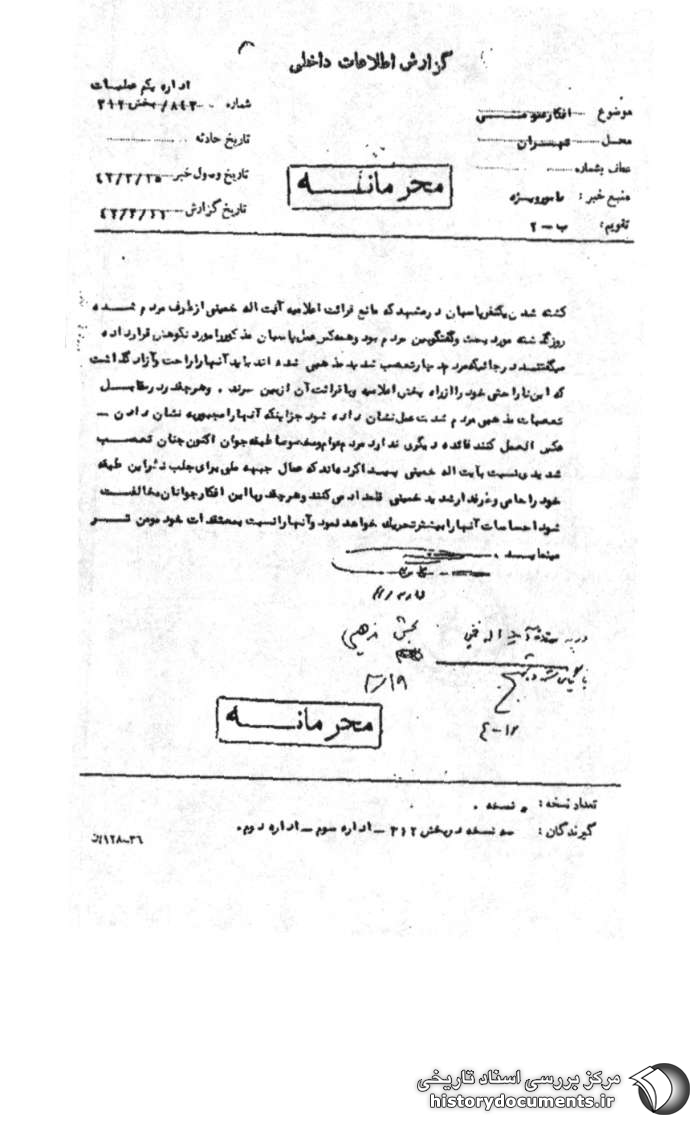 گزارش اطلاعات داخلی
اداره یکم عملیات
موضوع افکار عمومی شماره ۸۴۳/بخش ۳۱۲
محل تهران تاریخ حادثه
عطف بشماره تاریخ وصول خبر ۴۲/۲/۲۵
منبع خبر: مامور ویژه تاریخ گزارش
تقویم: ب-۲
محرمانه
کشته شدن یکنفر پاسبان در مشهد که مانع قرائت اعلامیه آیت اله خمینی از طرف مردم شده
روز گذشته مورد بحث و گفتگوی بین مردم بود و همه کس عمل پاسبان مذکور را مورد نکوهش قرار داده
میگفتند در جائیکه مردم دچار تعصب شدید مذهبی شده اند باید آنها را راحت و آزاد گذاشت
که این ناراحتی خود را از راه پخش اعلامیه و یا قرائت آن از بین ببرند . و هر چقدر در مقابل
تعصبات مذهبی مردم شدت عمل نشان داده شود جز اینکه آنها را مجبور به نشان دادن –
عکس العمل کنند فائده دیگری ندارد مردم عوام و مخصوصا طبقه جوان اکنون چنان تعصب
شدیدی نسبت بآیت اله خمینی پیدا کرده اند که عمال جبهه ملی برای جلب نظر این طبقه
خود را حامی و طرفدار شدید خمینی قلمداد می کنند و هر چقدر با این افکار جوانان مخالفت
شود احساسات آنها را بیشتر تحریک خواهد نمود و آنها را نسبت بمعتقدات خود مومن تر
مینماید .
بخش مذهبی
۲/۱۹
محرمانه
تعداد نسخه : ۵ نسخه .
گیرندگان : سه نسخه در بخش ۳۱۲ – اداره سوم – اداره دوم .
۳۶-۱۲۸/ک
مرکز بررسی اسناد تاریخی
historydocuments.ir